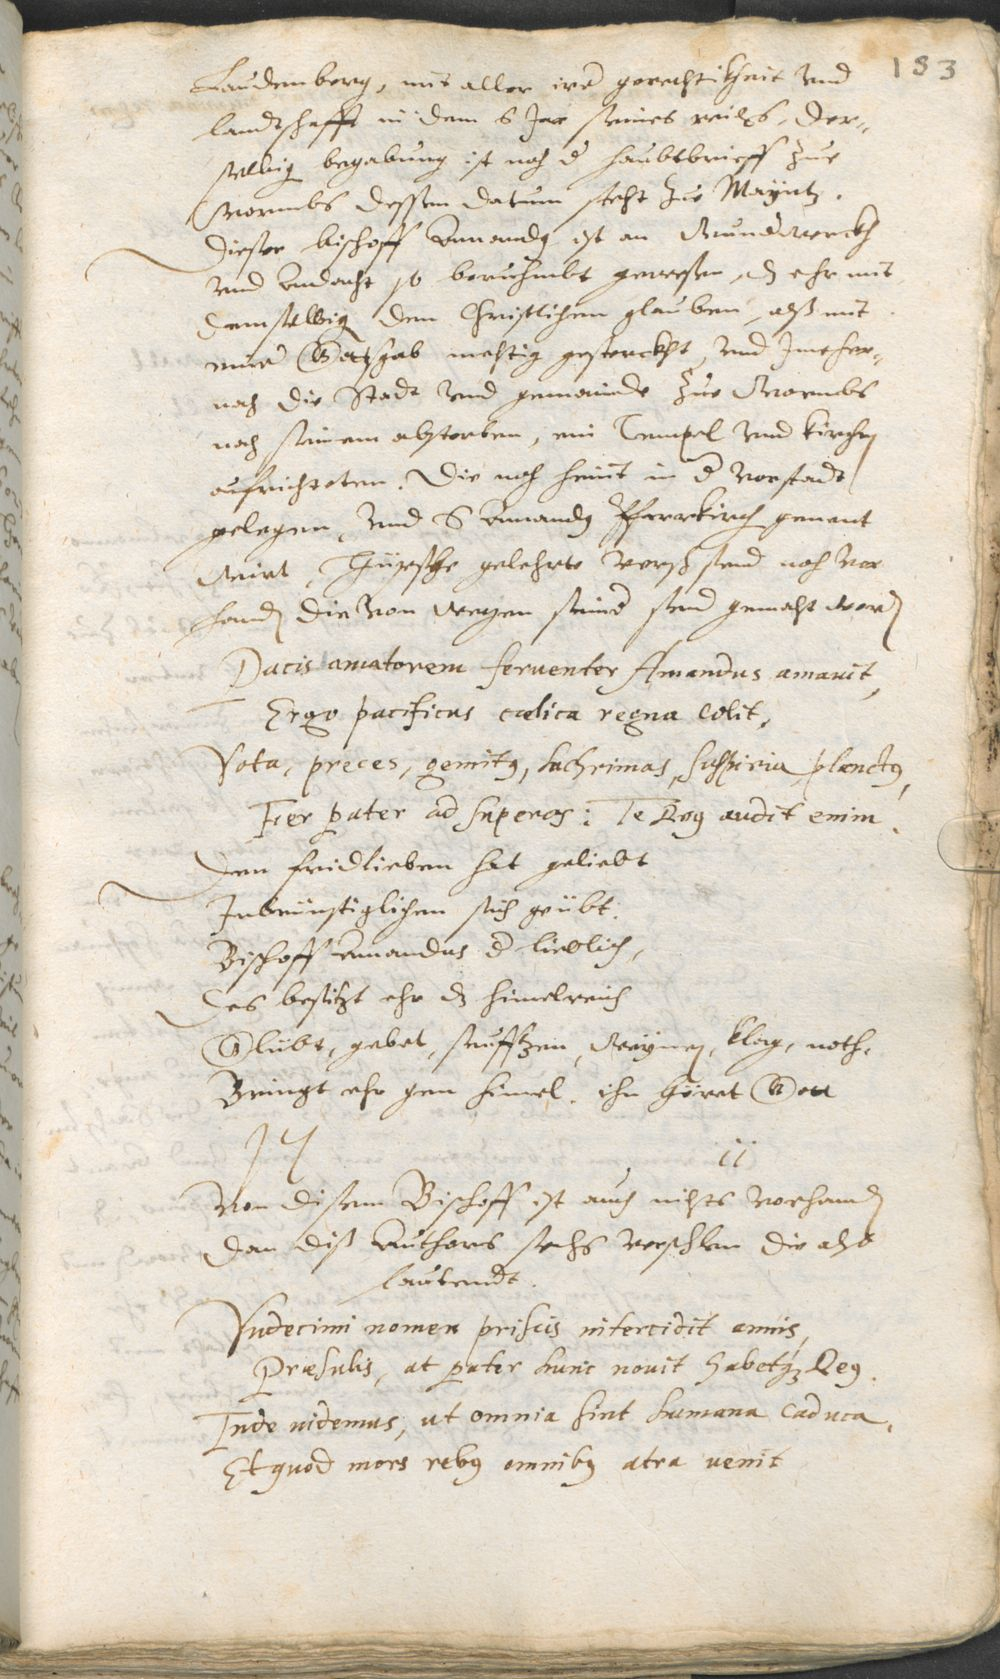 183
Laudenberg, mit aller irer gerechtikheit vnd
landtschafft in dem 6 Jar seines reichs. Der-
selbig begabung ist noch d haubtbrieff zue
Wormbs dessen datum steht zue Mayntz.
Dieser bischoff Amandg ist an Wunderwerckh
vnd andacht so beruhmbt gewesen, dz ehr mit
demselbig den Christlichen glauben, alß mit
einer Gottsgab mechtig gesterckht, vnd
noch die Stadt vnd gemainde zue Wormbs
nach seinem absterben, ein Tempel vnd kirchen
aufrichteten. Die noch heint in d vorstadt
gelegen, vnd S Amandg Pfarrkirch genent
Wirt, Hüpsche gelehrte verß send noch vor
handen die von wegen seiner send gemacht word
Pacis amatorem feruenter Amandus amauit,
Ergo pacificus cœlica regna colit.
Vota, preces, gemitg, lachrimas, suspiria, planctg,
Fier pater ad superos: Te Deg audit enim.
Den fridlieben hat geliebt
Inbrünstiglichen sich geübt.
Bischoff Amandus d lieblich,
Des besitzt ehr dz himelreich
Glübt, gebet, seufftzen, Weynen, klag, noth.
Bringt ehr gen himel. ihn höret Gott
11
Von disem Bischoff ist auch nichts vorhanden
dan diß Authors sechs verschlen die also
lautendt.
Vndecimi nomen priscis intercidit annis,
Præsulis, at pater hunc nouit habetqz Deg.
Inde uidemus, ut omnia sint humana caduca,
Et quod mors rebg omnibg atra uenit